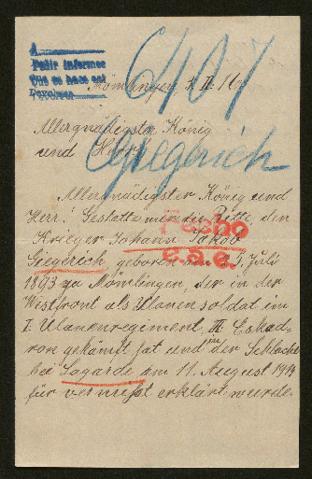 A
Pedir informes
Que se hace así
Devolver
6407
Mömlingen, 4. II. 16.
Allergnädigster König
und Herr!
Giegerich
Allergnädigster König und
Herr! Gestatte mir die Bitte, den
Fecho
Krieger Johann Jakob
e.s.e.
Giegerich, geboren am Juli
1893 zu Mömlingen, der in der
Westfront als Ulanensoldat im
I. Ulanenregiment, III. Eskad-
ron gekämpft hat und in der Schlacht
bei Lagarde am 11. August 1914
für vermißt erklärt wurde.